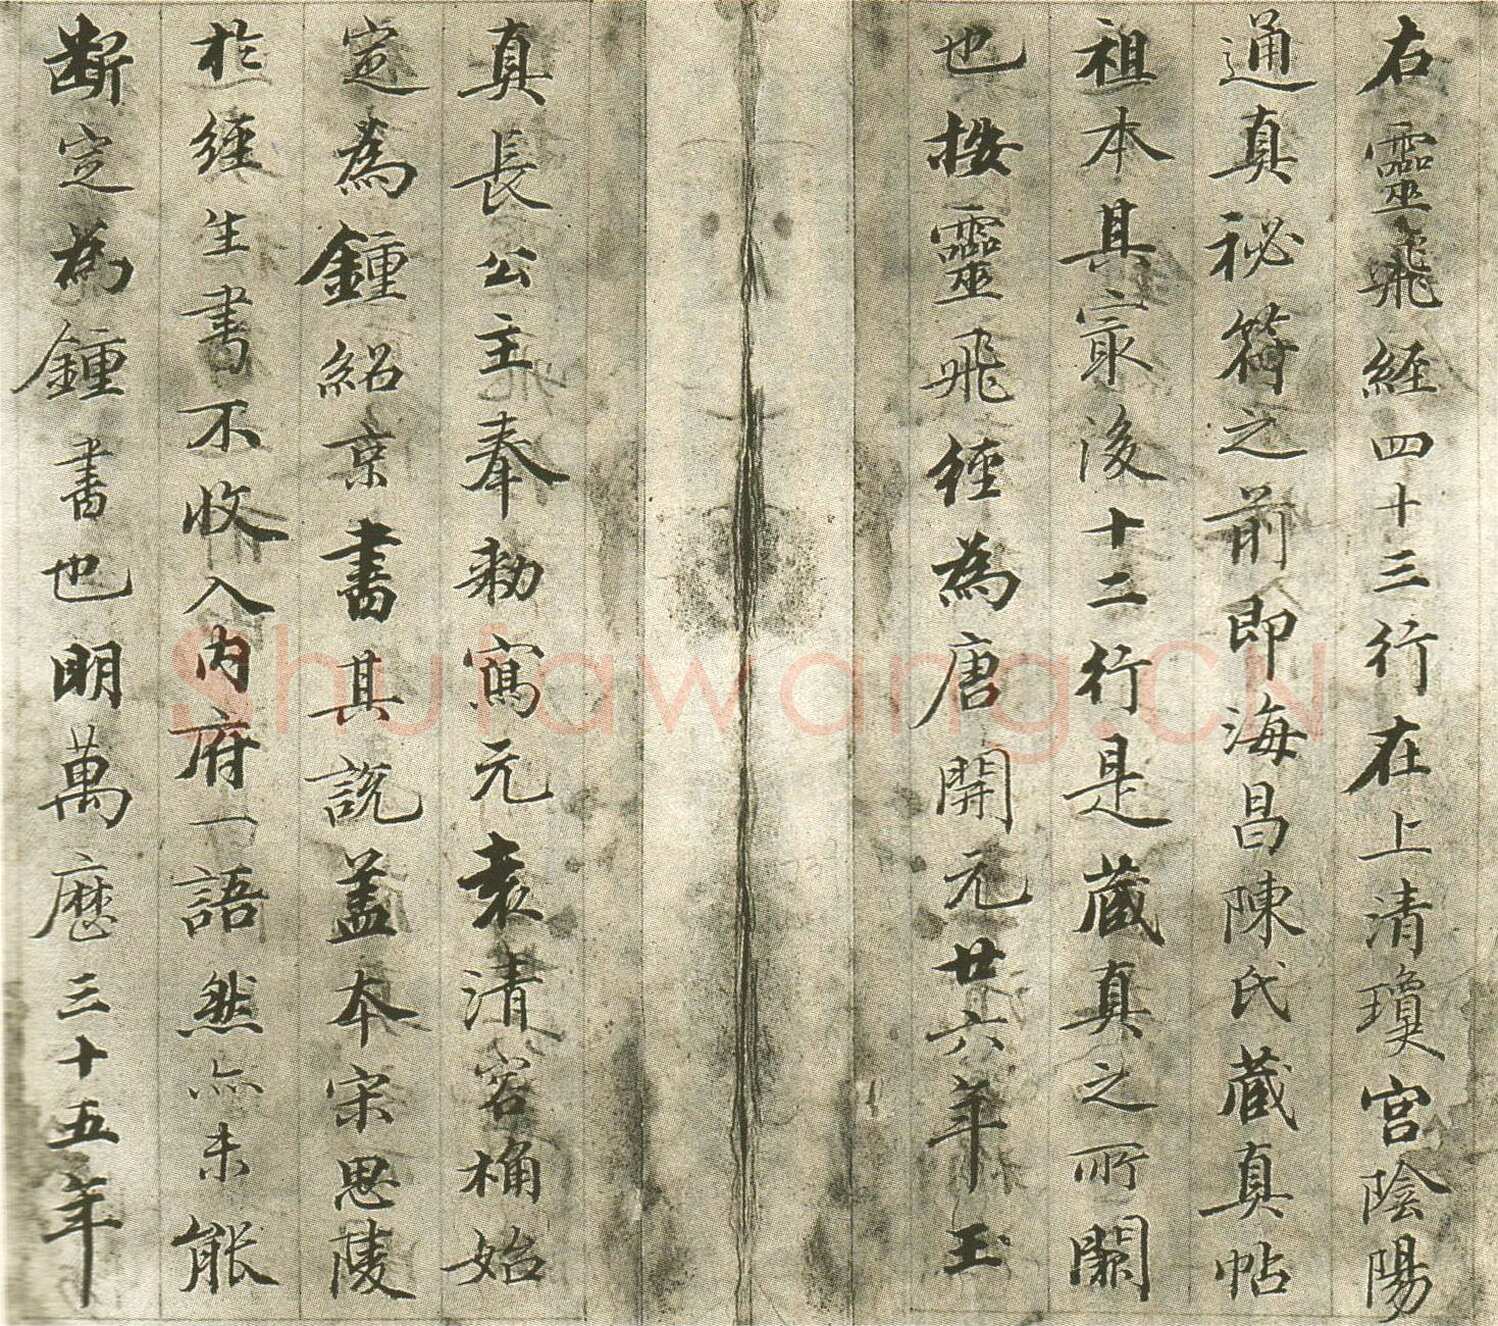 右靈飛經四十三行在上清瓊宮陰陽
通真祕符之前即海昌陳氏藏真帖
祖本其冣後十二行是藏真之所闕
也按靈飛經為唐開元廿六年玉
真長公主奉勅寫元袁清容桷始
定為鍾紹京書其説蓋本宋思陵
於經生書不收入內府一語然亦未能
斷定為鍾書也明萬歷三十五年
Shufawang.CN